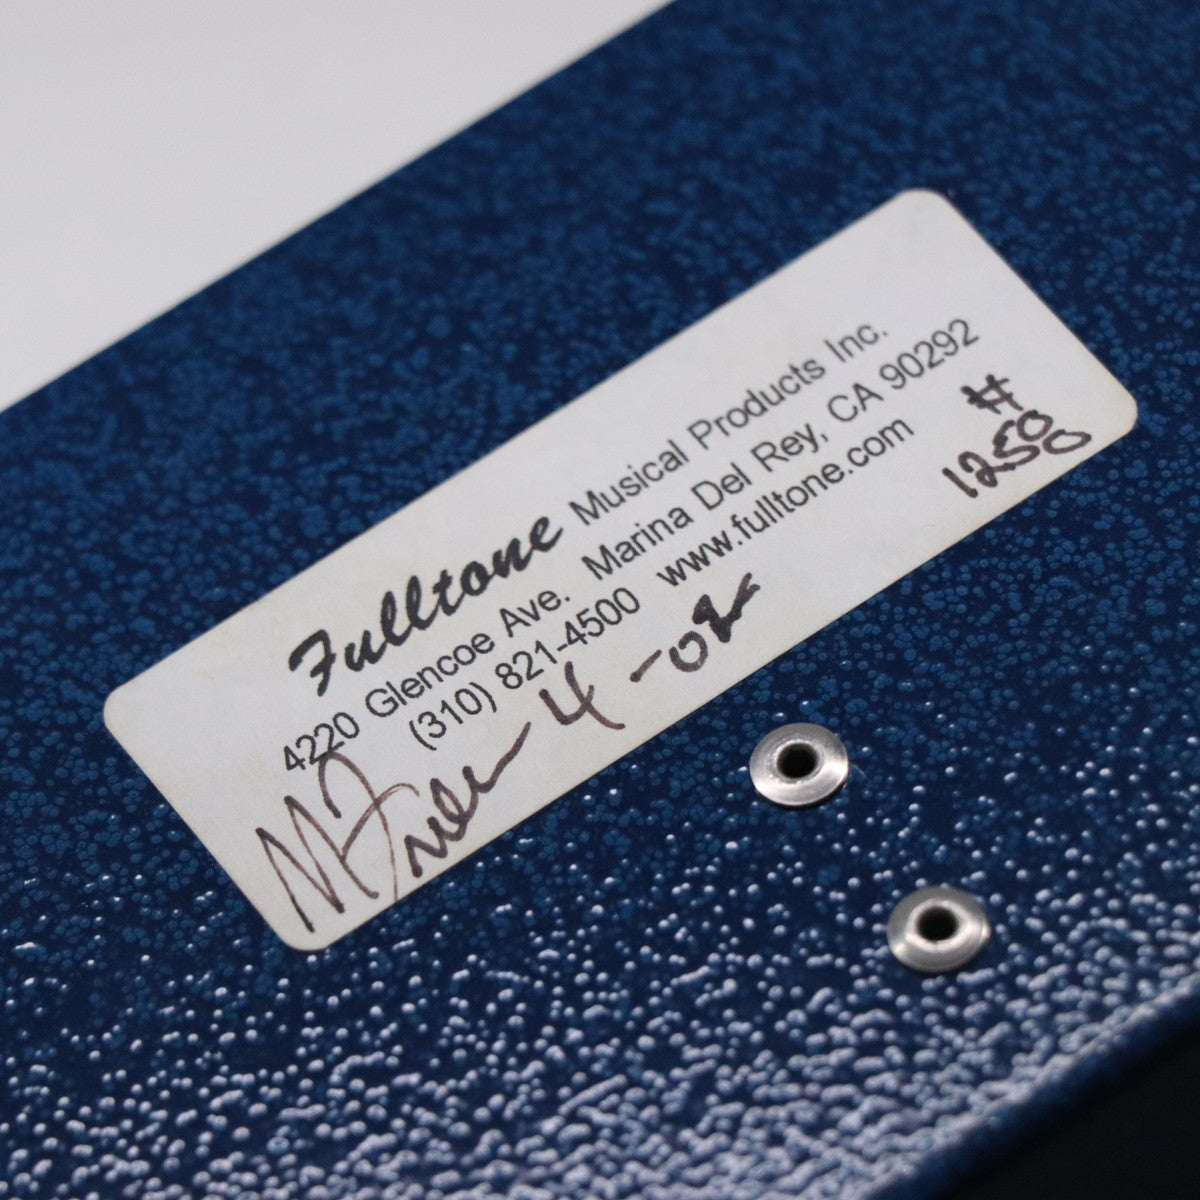 Fulltone Musical Products Inc.
4220 Glencoe Ave. Marina Del Rey, CA 90292
(310) 821-4500 www.fulltone.com
M Fuller - 4 - 02
#
12500